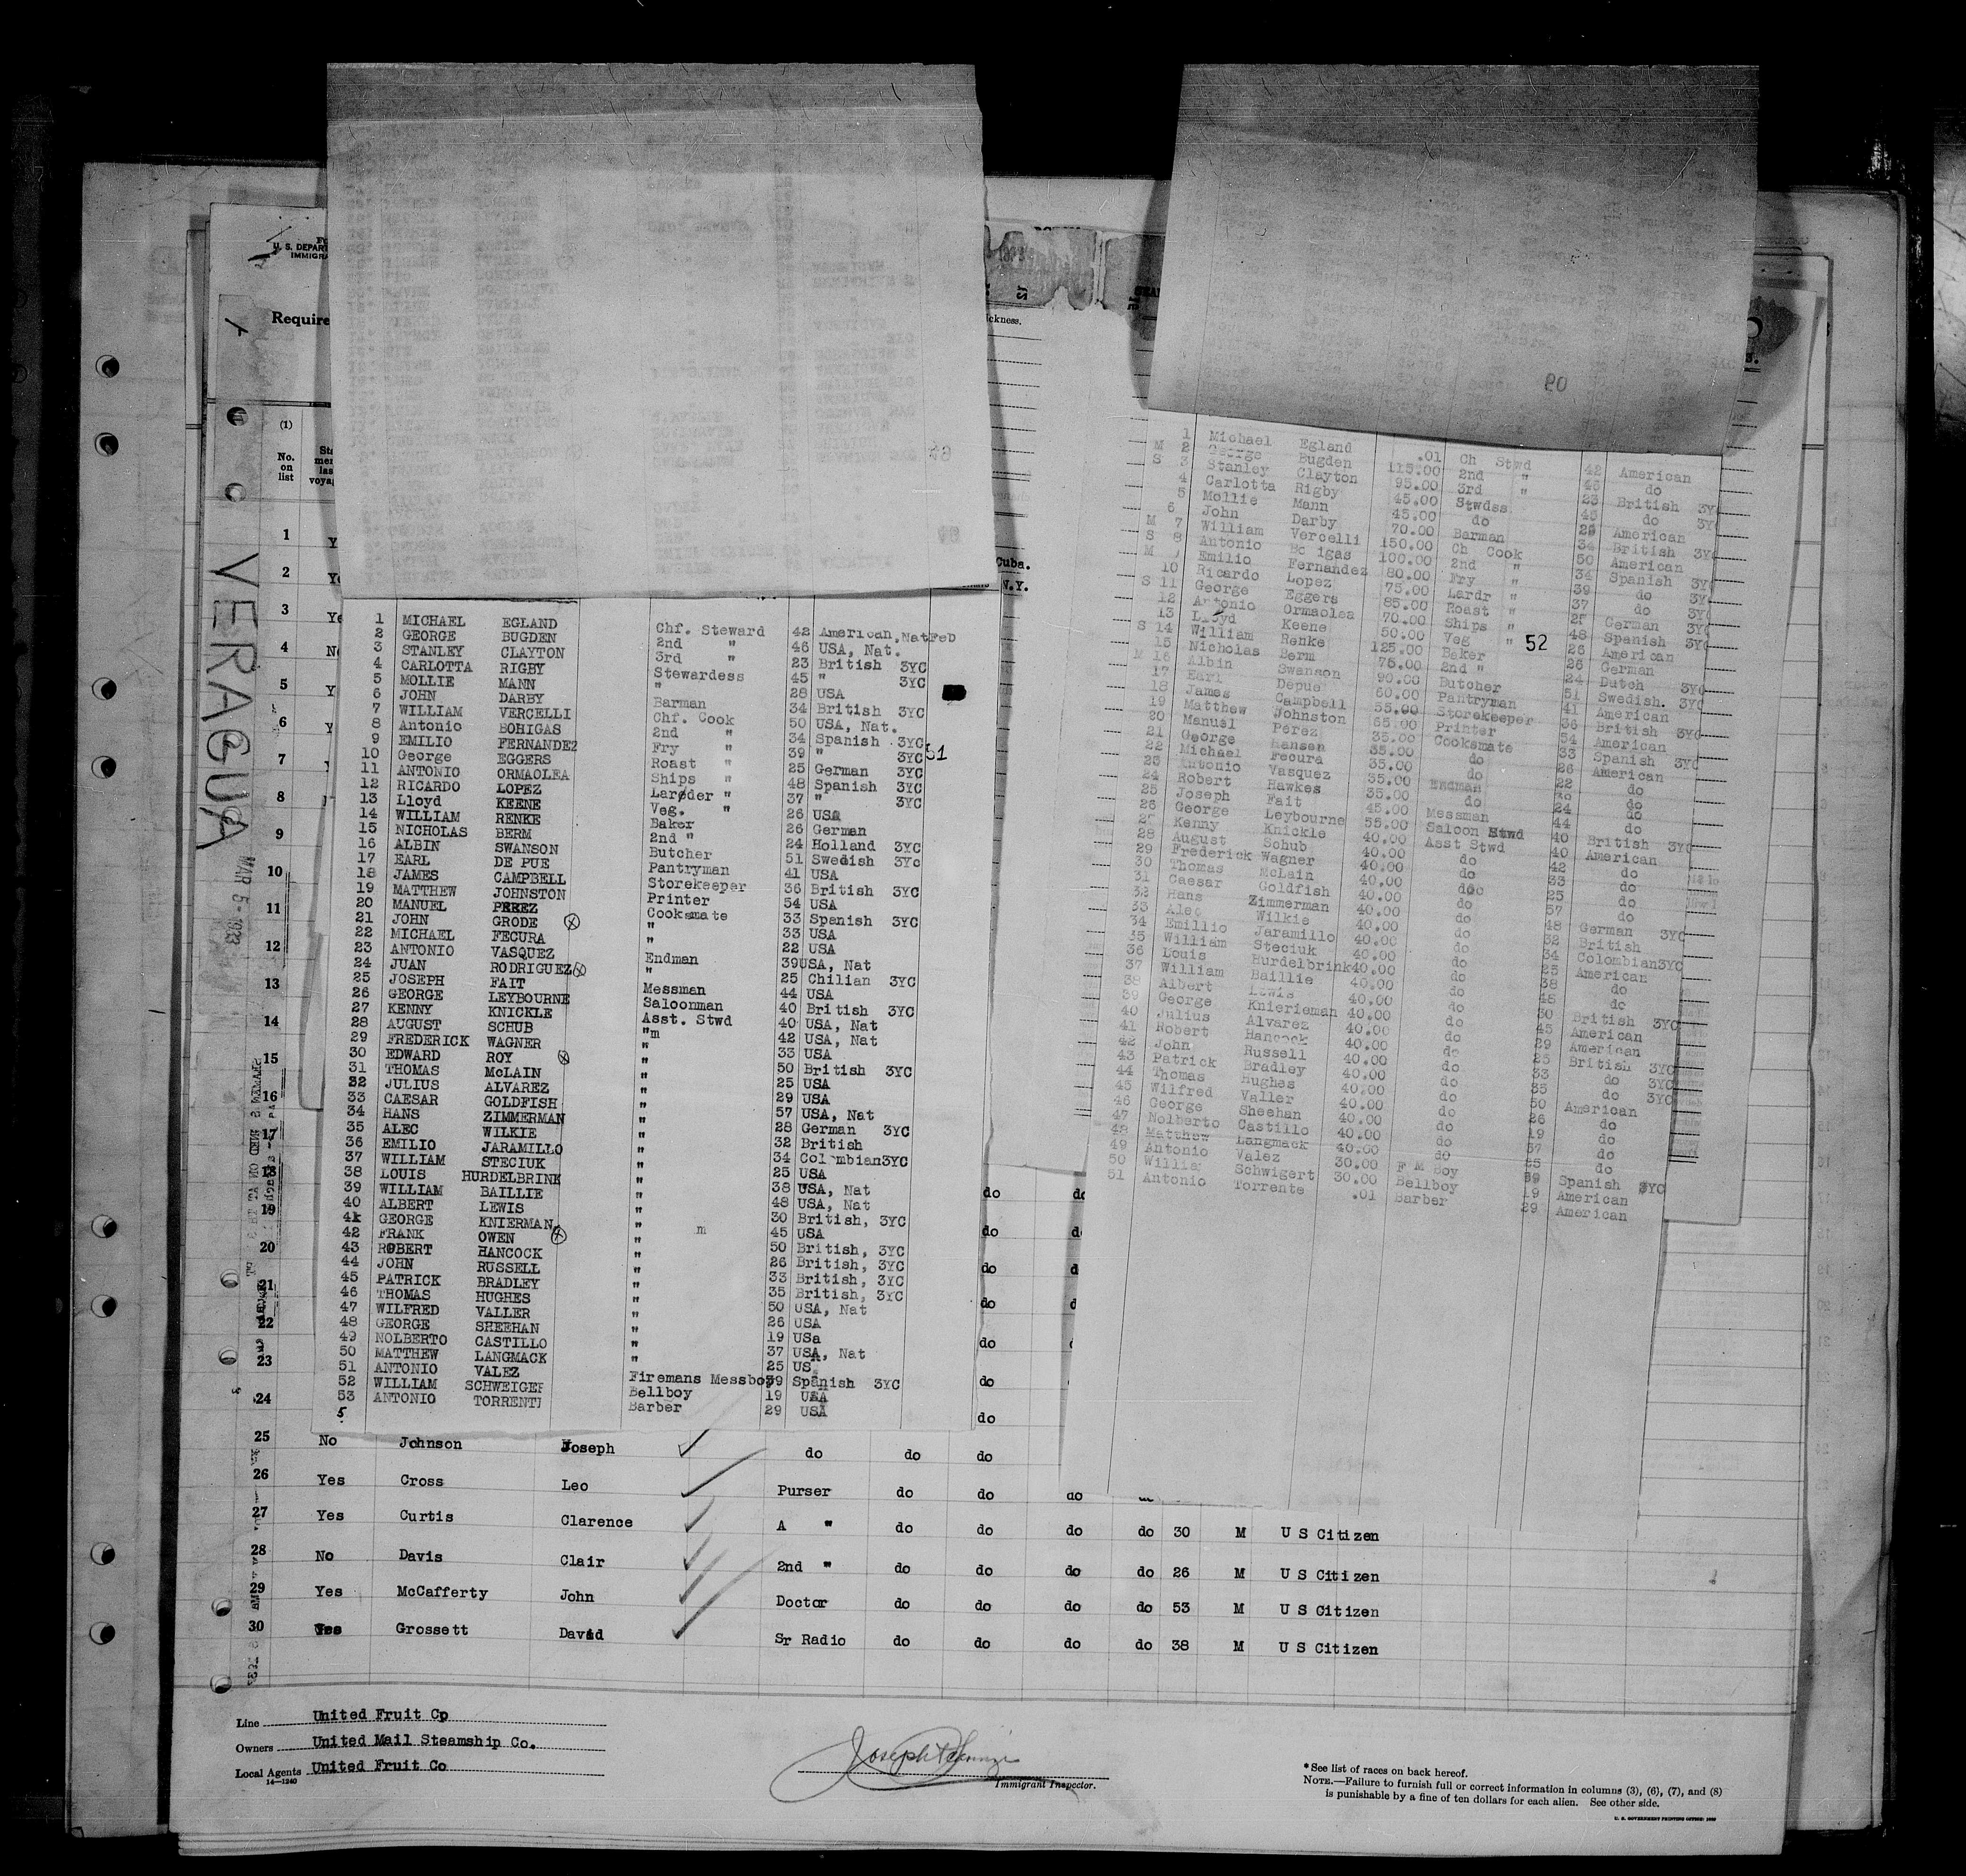 U. S. DEPAR
IMMIGRA
Require
(1)
No. on list
VERAGUA
MAR 5-1933
ickness.
Cuba.
N.Y.
1 MICHAEL EGLAND Chf. Steward 42 American,NatFeb
2 GEORGE BUGDEN 2nd " 46 USA, Nat.
3 STANLEY CLAYTON 3rd " 23 British 3YC
4 CARLOTTA RIGBY Stewardess 45 " 3YC
5 MOLLIE MANN " 28 USA
6 JOHN DARBY Barman 34 British 3YC
7 WILLIAM VERCELLI Chf. Cook 50 USA, Nat.
8 Antonio BOHIGAS 2nd " 34 Spanish 3YC
9 EMILIO FERNANDEZ Fry " 39 " 3YC 51
10 George EGGERS Roast " 25 German 3YC
11 ANTONIO ORMAOLEA Ships " 48 Spanish 3YC
12 RICARDO LOPEZ Larder " 37 " 3YC
13 Lloyd KEENE Veg. " 26 USA
14 WILLIAM RENKE Baker 26 German
15 NICHOLAS BERM 2nd " 24 Holland 3YC
16 ALBIN SWANSON Butcher 51 Swedish 3Yc
17 EARL DE PUE Pantryman 41 USA
18 JAMES CAMPBELL Storekeeper 36 British 3YC
19 MATTHEW JOHNSTON Printer 54 USA
20 MANUEL PEREZ Cooksmate 33 Spanish 3YC
21 JOHN GRODE " 33 USA
22 MICHAEL FECURA " 22 USA
23 ANTONIO VASQUEZ Endman 39USA, Nat
24 JUAN RODRIGUEZ " 25 Chilian 3YC
25 JOSEPH FAIT Messman 44 USA
26 GEORGE LEYBOURNE Saloonman 40 British 3YC
27 KENNY KNICKLE Asst. Stwd 40 USA, Nat
28 AUGUST SCHUB "m 42 USA, Nat
29 FREDERICK WAGNER " 33 USA
30 EDWARD ROY " 50 British 3YC
31 THOMAS McLAIN " 25 USA
32 JULIUS ALVAREZ " 29 USA
33 CAESAR GOLDFISH " 57 USA, Nat
34 HANS ZIMMERMAN " 28 German 3YC
35 ALEC WILKIE " 32 British
36 EMILIO JARAMILLO " 34 Col mbian3YC
37 WILLIAM STECIUK " 25 USA
38 LOUIS HURDELBRINK " 38 USA, Nat
39 WILLIAM BAILLIE " 48 USA, Nat
40 ALBERT LEWIS " 30 British, 3YC
41 GEORGE KNIERMAN " m 45 USA
42 FRANK OWEN " 50 British, 3YC
43 ROBERT HANCOCK " 26 British, 3YC
44 JOHN RUSSELL " 33 British, 3YC
45 PATRICK BRADLEY " 35 British, 3YC
46 THOMAS HUGHES " 50 USA, Nat
47 WILFRED VALLER " 26 USA
48 GEORGE SHEEHAN " 19 USa
49 NOLBERTO CASTILLO " 37 USA, Nat
50 MATTHEW LANGMACK " 25 US
51 ANTONIO VALEZ Firemans Messboy 39 Spanish 3YC
52 WILLIAM SCHWEIGER Bellboy 19 USA
53 ANTONIO TORRENTI Barber 29 USA
5
1 Michael Egland .01 Ch Stwd 42 American
M 2 George Bugden 115.00 2nd " 46 do
S 3 Stanley Clayton 95.00 3rd " 23 British 3YC
4 Carlotta Rigby 45.00 Stwdss 45 do 3YC
5 Mollie Mann 45.00 do 28 American
6 John Darby 70.00 Barman 34 British 3YC
M 7 William Vercelli 150.00 Ch Cook 50 American
S 8 Antonio Bo igas 100.00 2nd " 34 Spanish 3YC
M Emilio Fernandez 80.00 Fry " 39 do 3YC
10 Ricardo Lopez 75.00 Lardr " 37 do 3YC
S 11 George Eggers 85.00 Roast " 25 German 3YC
12 Antonio Ormaolea 70.00 Ships " 48 Spanish 3YC
13 Lloyd Keene 50.00 Veg " 52 26 American
S 14 William Renke 125.00 Baker 26 German
15 Nicholas Berm 75.00 2nd " 24 Dutch 3YC
M 16 Albin Swanson 90.00 Butcher 51 Swedish. 3YC
17 Earl Depue 60.00 Pantryman 41 American
18 James Campbell 55.00 Storekeeper 36 British 3YC
19 Matthew Johnston 65.00 Printer 54 American
20 Manuel Perez 35.00 Cooksmate 33 Spanish 3YC
21 George Hansen 35.00 do 26 American
22 Michael Fecura 35.00 do 22 do
23 Antonio Vasquez 35.00 Endman do
24 Robert Hawkes 35.00 do 24 do
25 Joseph Fait 45.00 Messman 44 do
26 George Leybourne 55.00 Saloon Stwd 40 British 3YC
27 Kenny Knickle 40.00 Asst Stwd 40 American
28 August Schub 40.00 do 42 do
29 Frederick Wagner 40.00 do 33 do
30 Thomas McLain 40.00 do 25 do
31 Caesar Goldfish 40.00 do 57 do
32 Hans Zimmerman 40.00 do 48 German 3YC
33 Alec Wilkie 40.00 do 32 British
34 Emillio Jaramillo 40.00 do 34 Colombian3YC
35 William Steciuk 40.00 do 25 American
36 Louis Hurdelbrink40.00 do 38 do
37 William Baillie 40.00 do 48 do
38 Albert Lewis 40.00 do 30 British 3YC
39 George Knierieman 40.00 do 45 American
40 Julius Alvarez 40.00 do 29 American
41 Robert Hancock 40.00 do British 3YC
42 John Russell 40.00 do 33 do 3YC
43 Patrick Bradley 40.00 do 35 do 3YC
44 Thomas Hughes 40.00 do 50 American
45 Wilfred Valler 40.00 do 26 do
46 George Sheehan 40.00 do 19 do
47 Nolberto Castillo 40.00 do 37 do
48 Matthew Langmack 40.00 do 25 do
49 Antonio Valez 30.00 F M Boy 39 Spanish 3YC
50 Willia Schwigert 30.00 Bellboy 19 American
51 Antonio Torrente .01 Barber 29 American
25 No Johnson Joseph do do do
26 Yes Cross Leo Purser do do do
27 Yes Curtis Clarence A " do do do do 30 M U S Citizen
28 No Davis Clair 2nd " do do do do 26 M U S Citizen
29 Yes McCafferty John Doctor do do do do 53 M U S Citizen
30 Yes Grossett David Sr Radio do do do do 38 M U S Citizen
Line United Fruit Co
Owners United Mail Steamship Co.
Local Agents United Fruit Co
14—1240
Immigrant Inspector.
*See list of races on back hereof.
NOTE.—Failure to furnish full or correct information in columns (3), (6), (7), and (8)
is punishable by a fine of ten dollars for each alien. See other side.
U. S. GOVERNMENT PRINTING OFFICE: